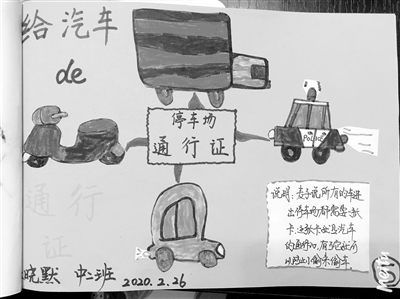 给汽车
de
停车场
通行证
POLICE
通行
证
说明：麦子说所有的车进
出停车场都需要一张
卡，这张卡就是汽车
的通行证，有了它就可
以防止小偷来偷车
晓默 中二班 2020.2.26